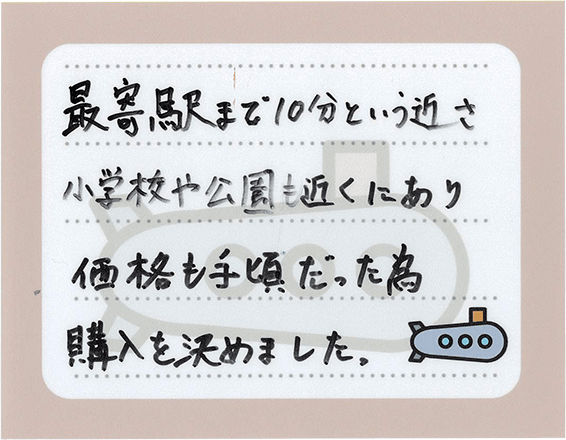 最寄駅まで10分という近さ
小学校や公園も近くにあり
価格も手頃だった為
購入を決めました。